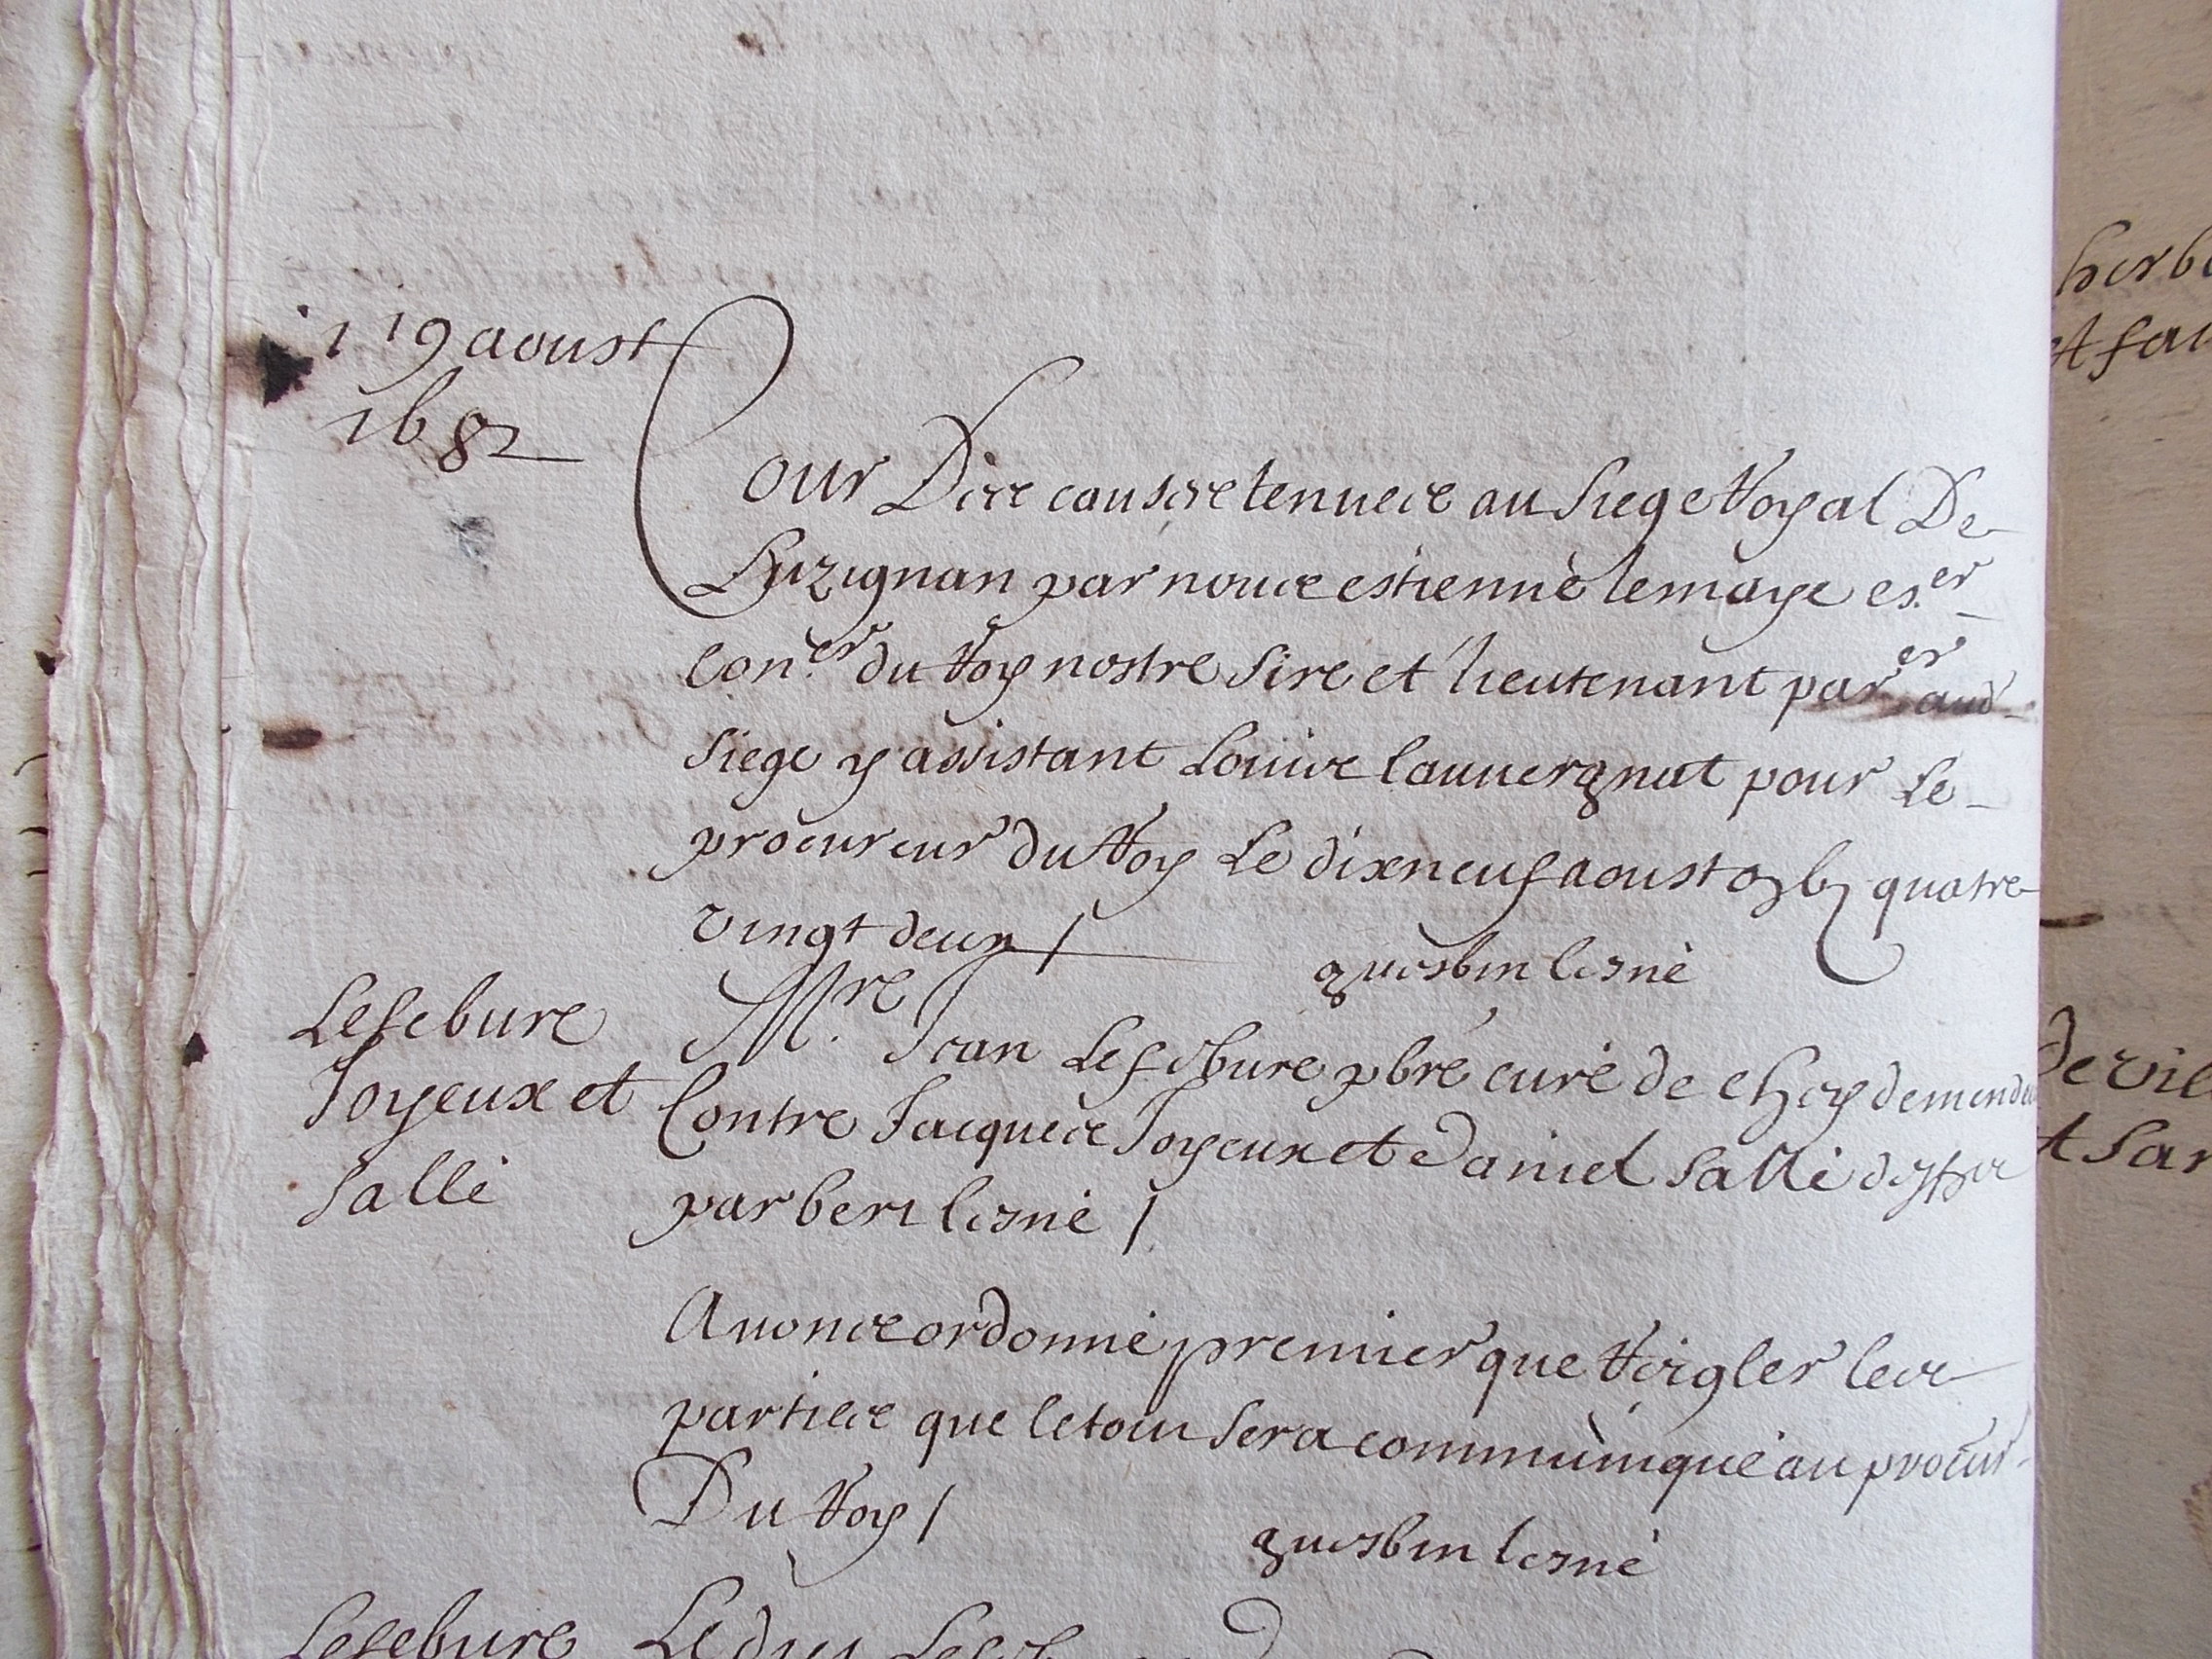 19 aoust
1682
Cour Des causes tenues au siege Royal De
Luzignan par nous estienne lemaye es.er
con.er du Roy nostre sire et lieutenant par.er aud
siege y assistant Louis lauvergnat pour le
procureur du Roy Le dixneuf aoust quatre
vingt deux /
Lefebure
Joyeux et
Sallé
guesbin lesné
M.re Jean Lefebure pbre curé de
Contre Jacques Joyeux et Daniel Sallé
par bert lesné /
Avons ordonné premier que Reigler les
parties que le tout sera communiqué au procur
Du Roy /
guesbin lesné
Lefebure
herb
et fai
de vil